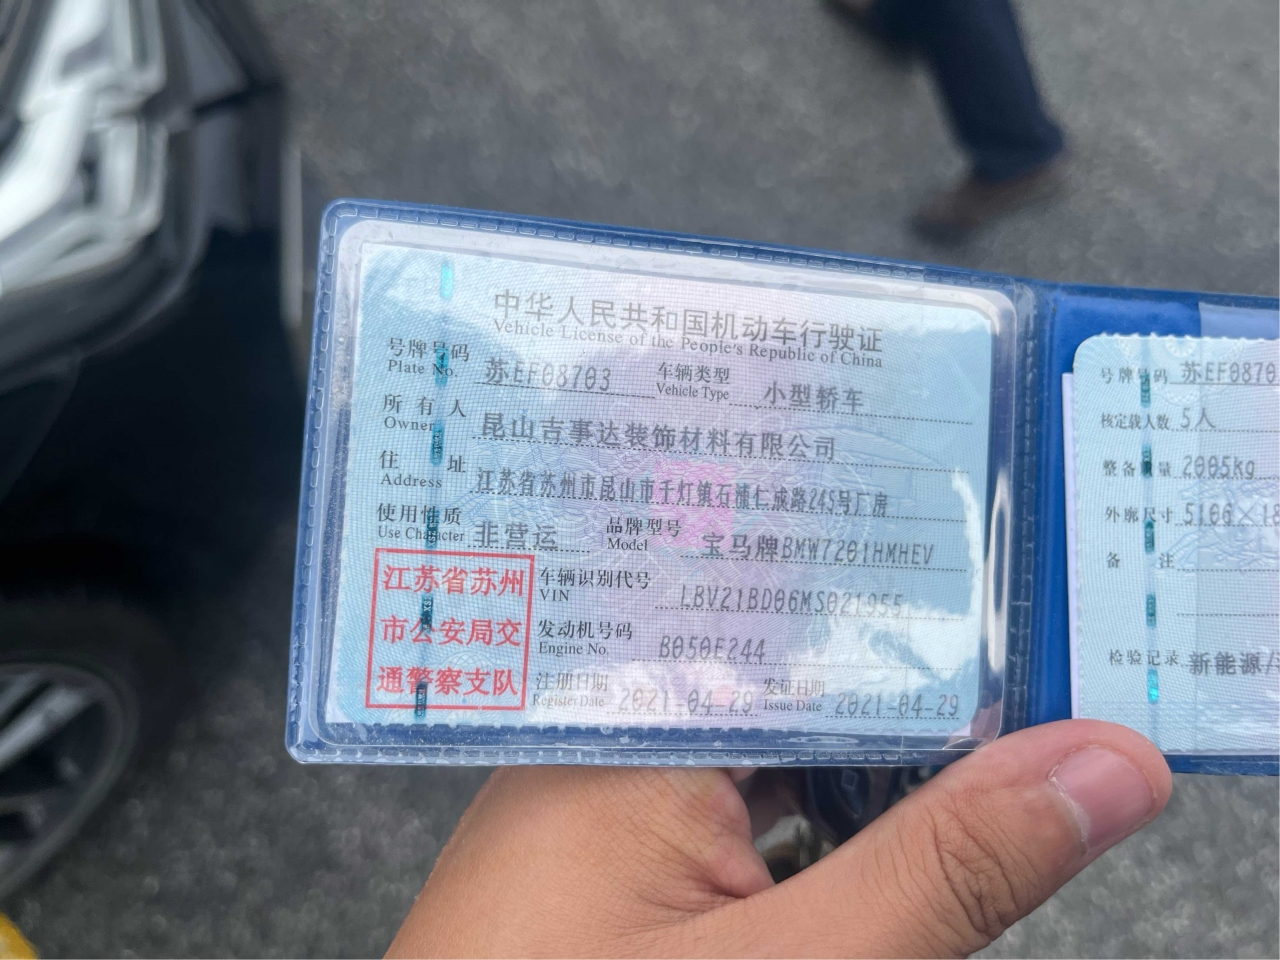 中华人民共和国机动车行驶证
Vehicle License of the People's Republic of China
号牌号码 苏EF08703 车辆类型 小型轿车
Plate No. Vehicle Type
所有人 昆山吉事达装饰材料有限公司
Owner
住址 江苏省苏州市昆山市千灯镇石浦仁成路245号厂房
Address
使用性质 非营运 品牌型号 宝马牌BMW7201HMHEV
Use Character Model
江苏省苏州
市公安局交
通警察支队
车辆识别代号 LBV21BD06MS021955
VIN
发动机号码 B050E244
Engine No.
注册日期 2021-04-29 发证日期 2021-04-29
Register Date Issue Date
号牌号码 苏EF0870
核定载人数 5人
整备质量 2005kg
外廓尺寸 5106×18
备注
检验记录 新能源/